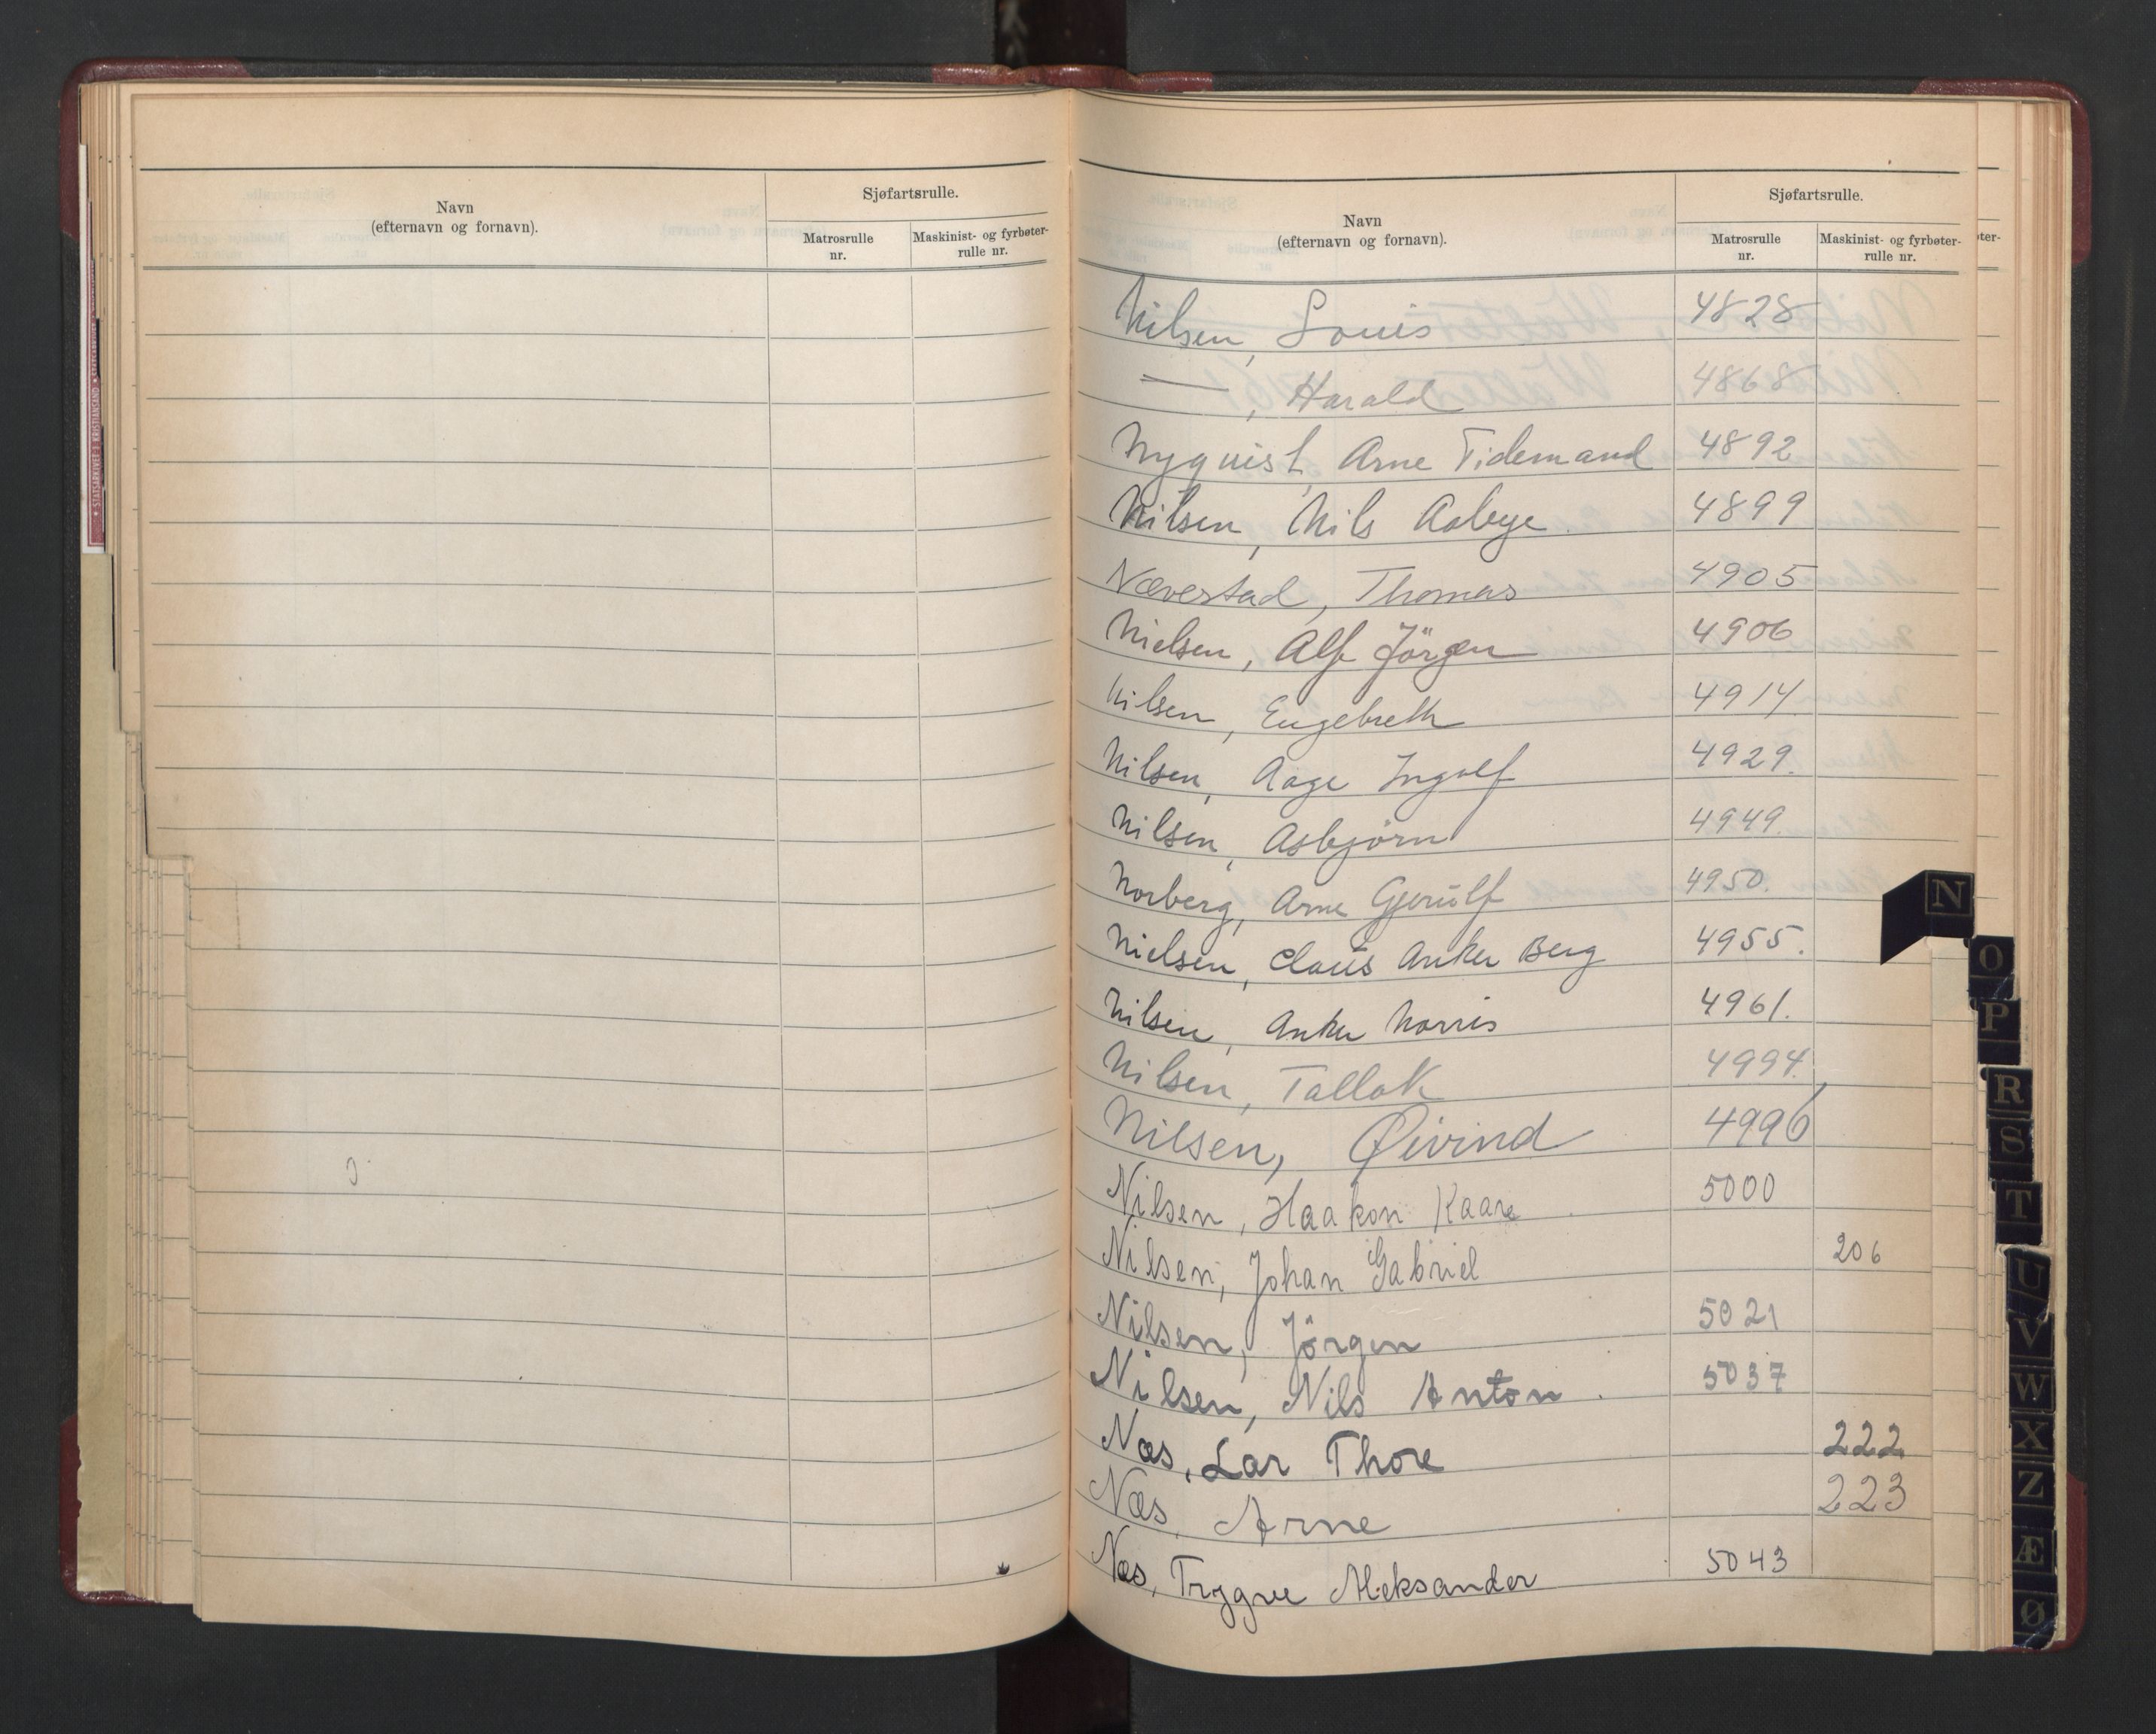 Navn
(efternavn og fornavn).
Sjøfartsrulle.
Matrosrulle
nr.
Maskinist- og fyrbøter-
rulle nr.
Navn
(efternavn og fornavn).
Sjøfartsrulle.
Matrosrulle
nr.
Maskinist- og fyrbøter-
rulle nr.
øter-
Nilsen, Louis 4828
— , Harald 4868
Nyquist, Arne Tidemand 4892
Nilsen, Nils Aabye 4899
Næverstad, Thomas 4905
Nielsen, Alf Jörgen 4906
Nilsen, Engebreth 4914
Nilsen, Aage Ingolf 4929.
Nilsen, Asbjörn 4949.
Norberg, Arne Gjerulf 4950.
Nielsen, Claus Anker Berg 4955.
Nilsen, Anker Norris 4961.
Nilsen, Tallak 4994.
Nilsen, Øivind 4996
Nilsen, Haakon Kaare 5000
Nilsen, Johan Gabriel 206
Nilsen, Jörgen 5021
Nilsen, Nils Anton. 5037
Næs, Lar Thore 222
Næs, Arne 223
Næs, Trygve Aleksander 5043
N
O
P
R
S
T
U
V
W
X
Z
Æ
Ø